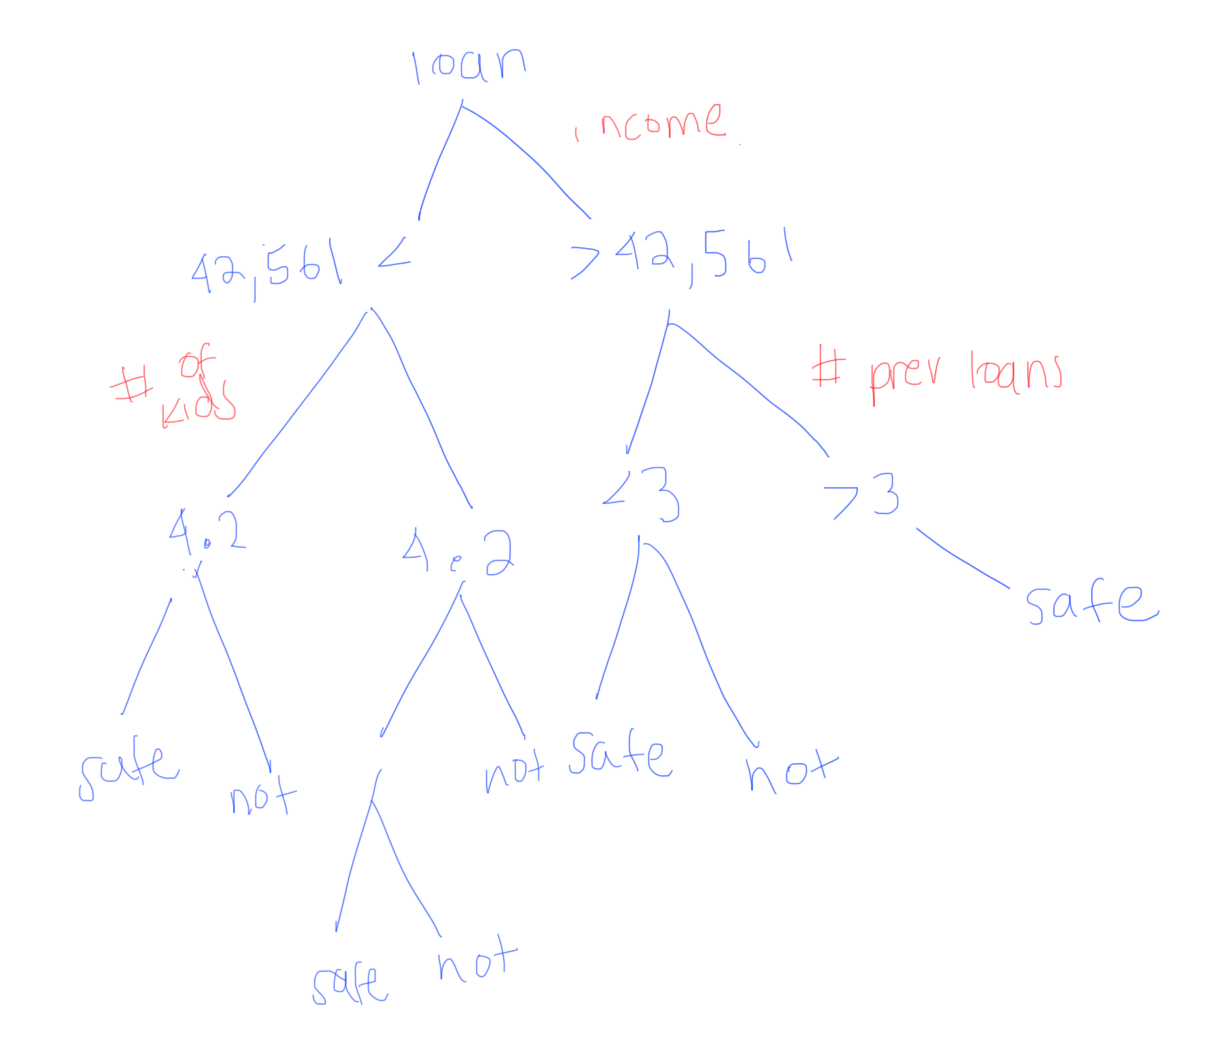 loan
income
42,561 <
> 42,561
# of
kids
# prev loans
4.2
4.2
<3
>3
safe
safe
not
not
safe
not
safe
not